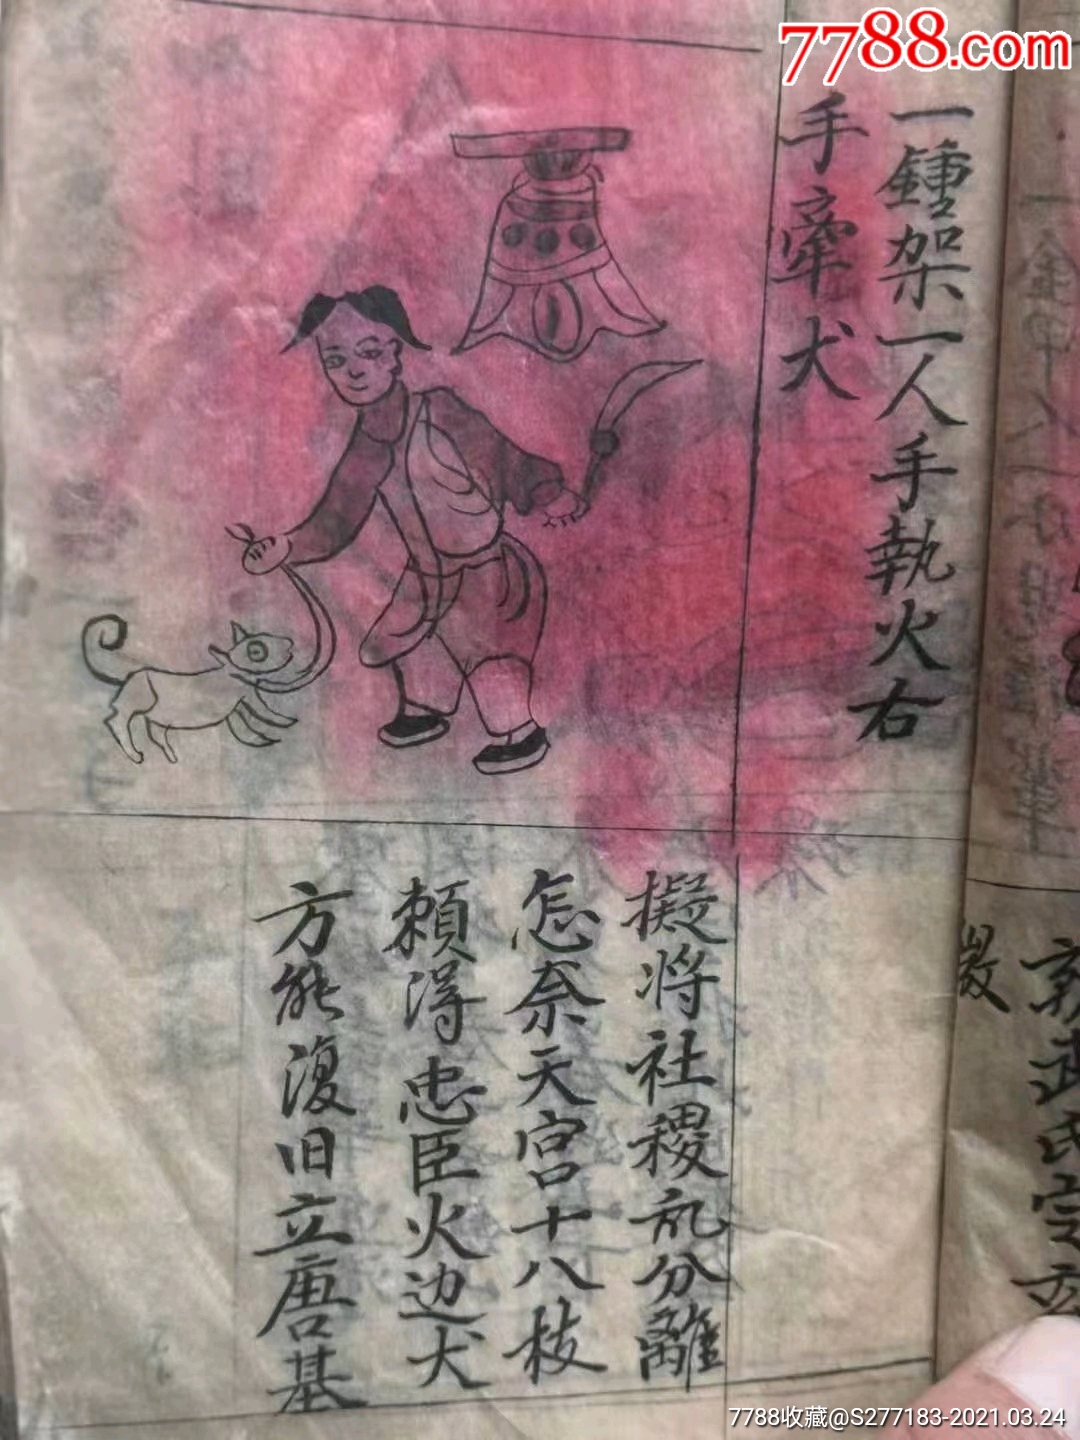 7788.com
一鍾架一人手執火右
手牽犬
擬将社稷乱分離
怎奈天宫十八枝
賴淂忠臣火边犬
方能復旧立唐基
武氏
7788收藏@S277183-2021.03.24